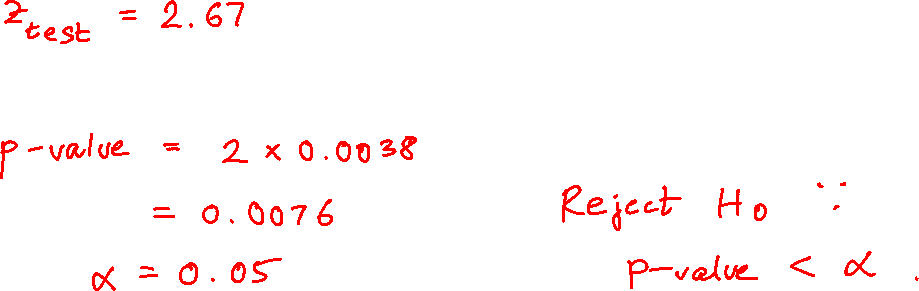 z_test = 2.67
p-value = 2 × 0.0038
= 0.0076
α = 0.05
Reject H₀ ∵
p-value < α .